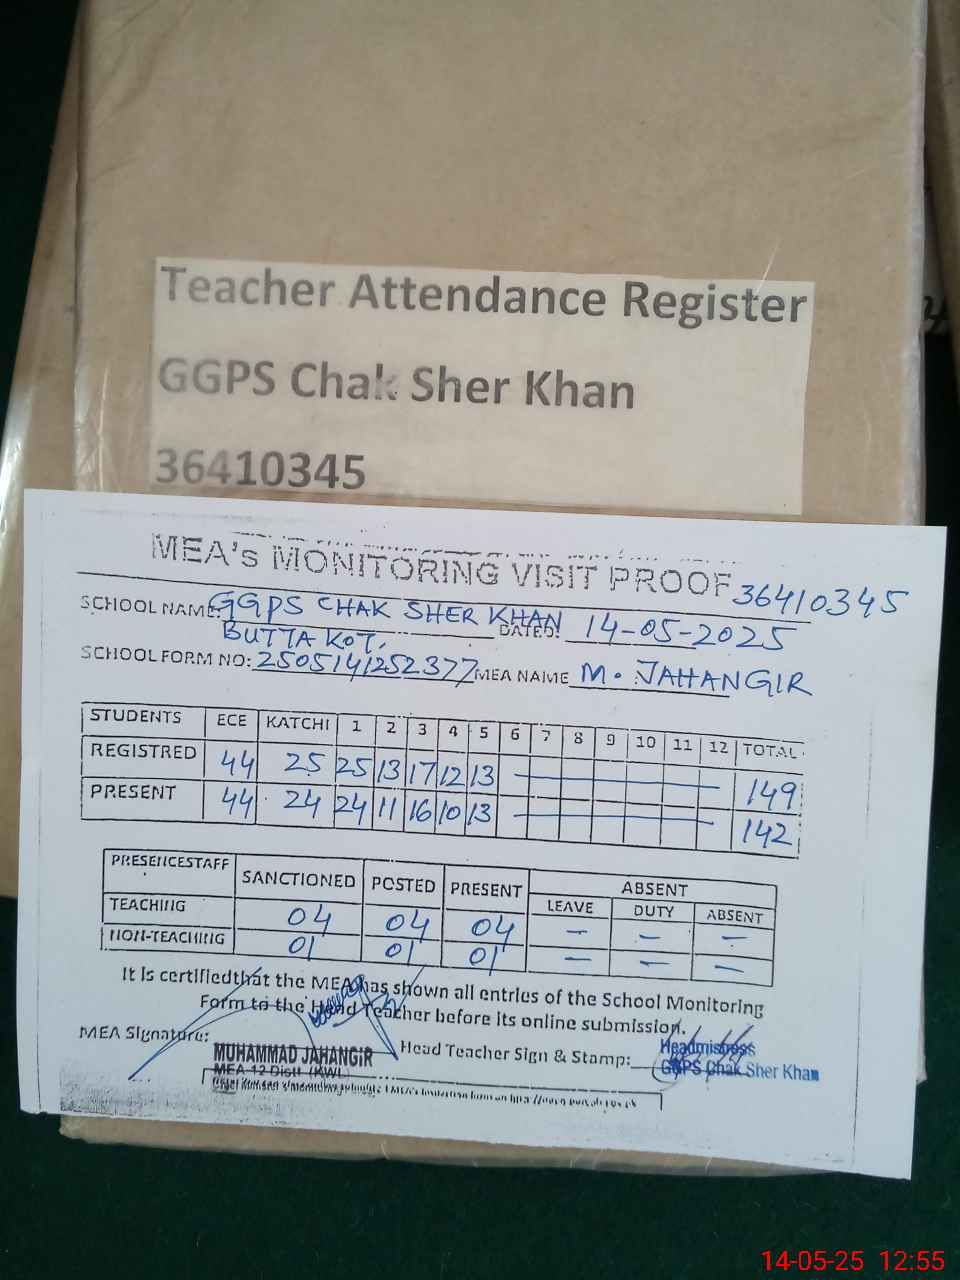 Teacher Attendance Register
GGPS Chak Sher Khan
36410345
MEA's MONITORING VISIT PROOF 36410345
SCHOOL NAME: GGPS CHAK SHER KHAN DATED: 14-05-2025
BUTTA KOT.
SCHOOL FORM NO: 2505141252377 MEA NAME M. JAHANGIR
STUDENTS ECE KATCHI 1 2 3 4 5 6 7 8 9 10 11 12 TOTAL
REGISTRED 44 25 25 13 17 12 13 149
PRESENT 44 24 24 11 16 10 13 142
PRESENCESTAFF SANCTIONED POSTED PRESENT ABSENT
LEAVE DUTY ABSENT
TEACHING 04 04 04 - - -
NON-TEACHING 01 01 01 - - -
It is certifiedthat the MEA has shown all entries of the School Monitoring
Form to the Head Teacher before its online submission.
MEA Signature: Head Teacher Sign & Stamp:
MUHAMMAD JAHANGIR
MEA-12 Distt (KWL)
Headmistress
GGPS Chak Sher Khan
14-05-25 12:55